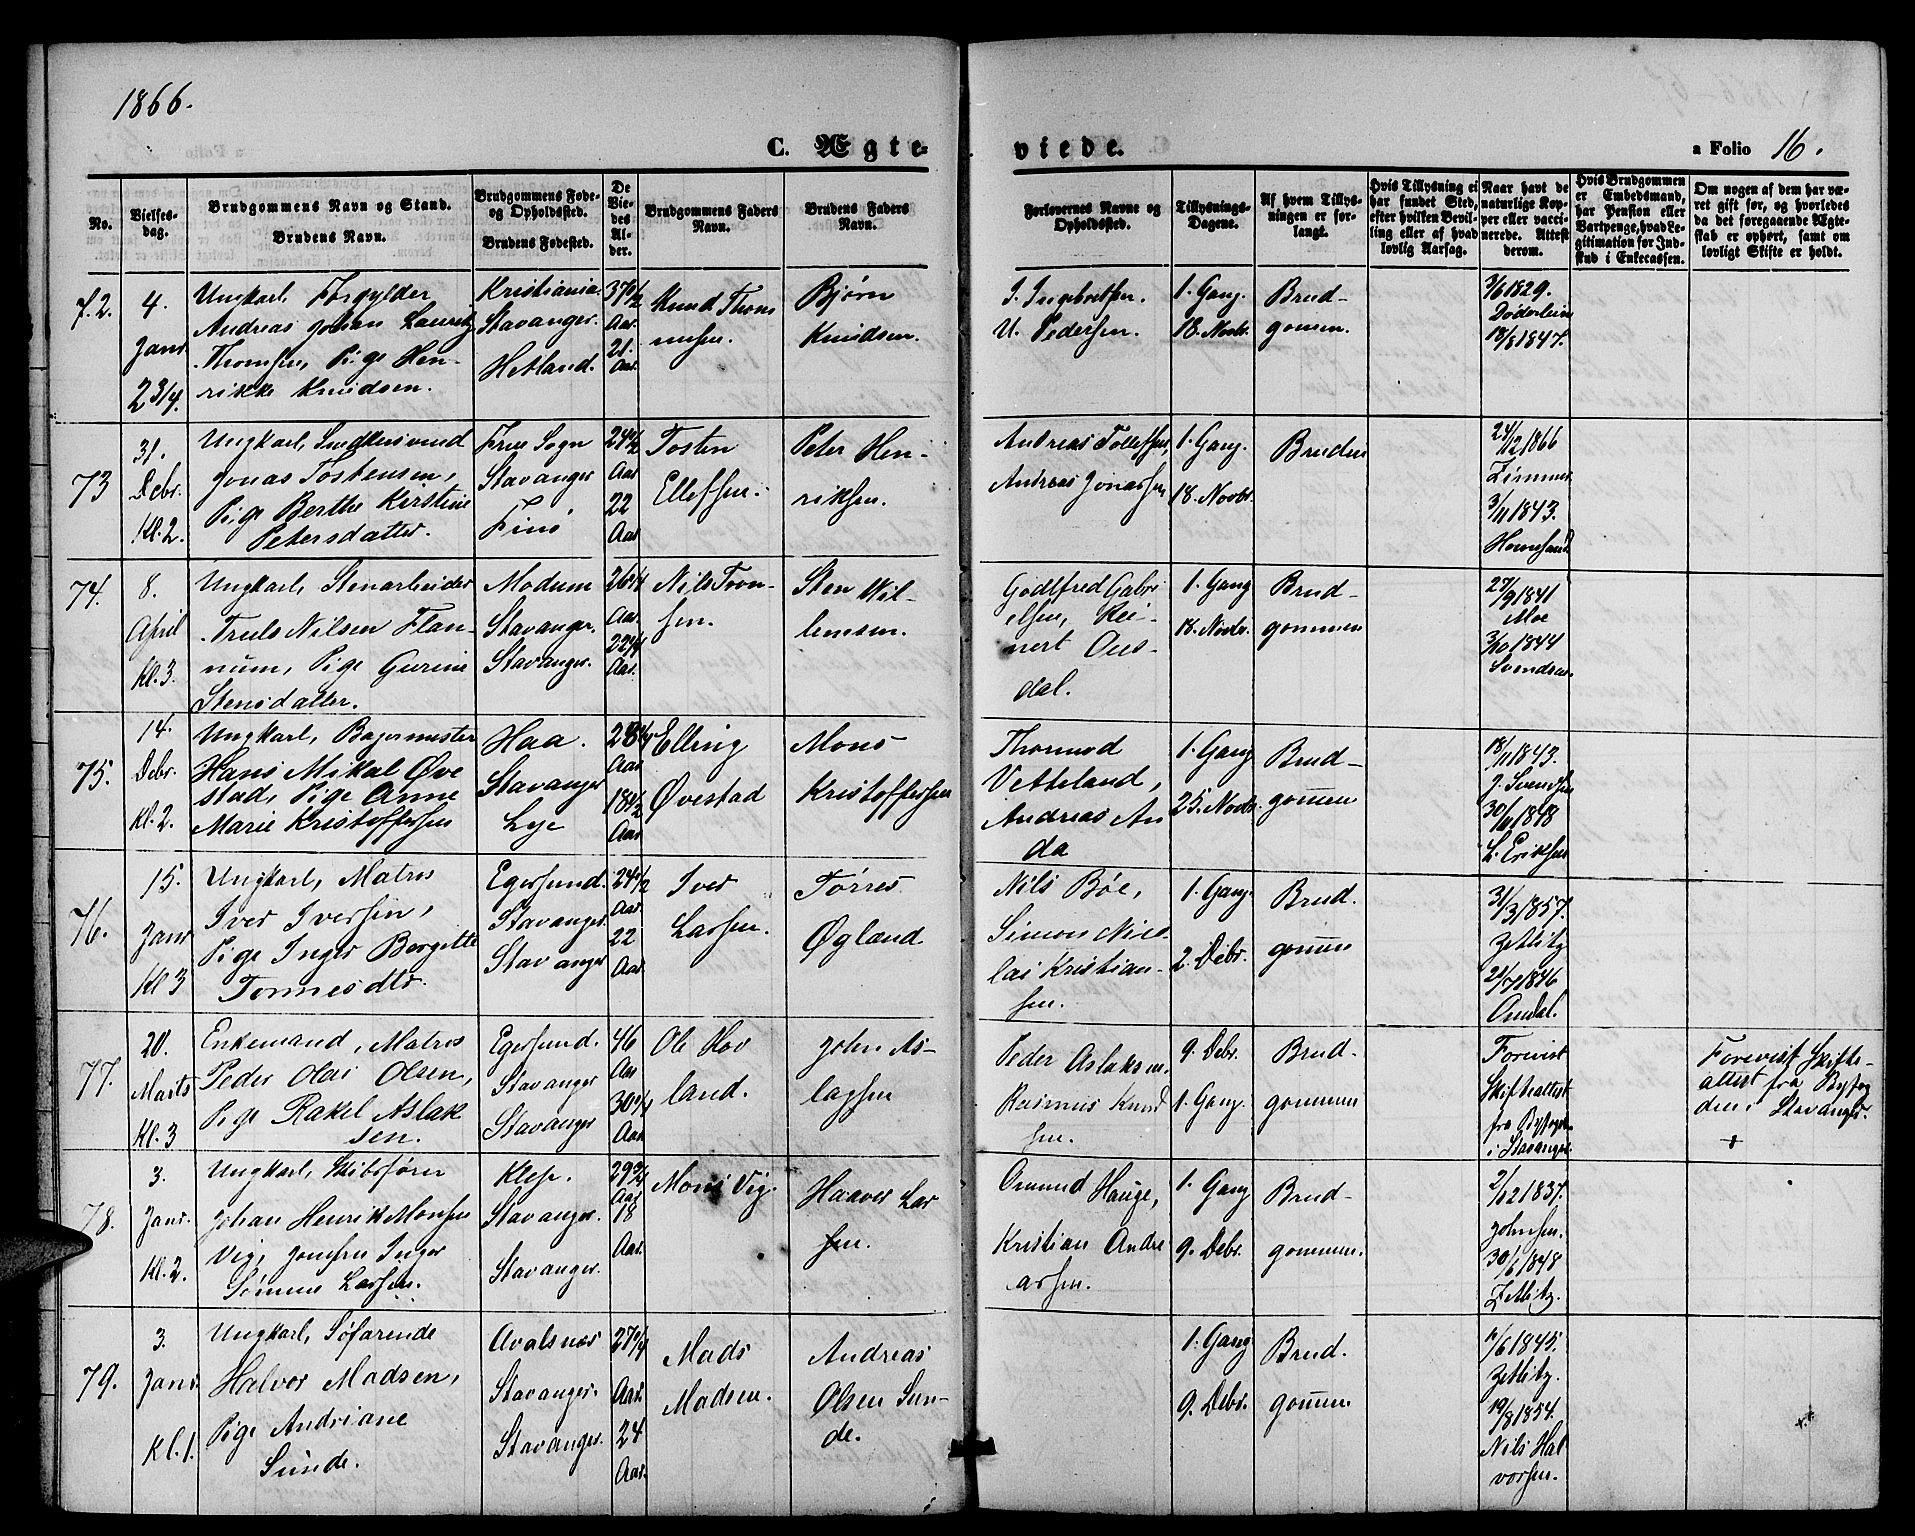 1866.
C. Ægte-
viede.
a Folio 16.
No.
Vielses-
dag.
Brudgommens Navn og Stand.
Brudens Navn.
Brudgommens Føde-
og Opholdssted.
Brudens Fødested.
De
Vie-
des
Al-
der.
Brudgommens Faders
Navn.
Brudens Faders
Navn.
Forlovernes Navne og
Opholdssted.
Tillysnings-
Dagene.
Af hvem Tillys-
ningen er for-
langt.
Hvis Tillysning ei
har fundet Sted,
efter hvilken Bevil-
ling eller af hvad
lovlig Aarsag.
Naar havt de
naturlige Kop-
per eller vacci-
nerede. Attest
derom.
Hvis Brudgommen
er Embedsmand,
har Pension eller
Vartpenge, hvad Le-
gitimation for Ind-
skud i Enkecassen.
Om nogen af dem har væ-
ret gift før, og hvorledes
da det foregaaende Ægte-
skab er ophørt, samt om
lovligt Skifte er holdt.
72.
4.
Janr
2 3/4.
Ungkarl, Forgylder
Andreas Johan Lauritz
Thomsen, Pige Hen-
rikke Knudsen.
Kristiania.
Stavanger.
Hetland.
37 1/2
Aar
21.
Aar
Knud Thom
sen.
Bjørn
Knudsen.
I. Ingebretsen.
U. Pedersen.
1. Gang.
18. Novbr.
Brud-
gommen.
3/6 1829.
Døderlein
18/8 1847.
73
31.
Debr.
Kl. 2.
Ungkarl,
Jonas Tostensen,
Pige Berthe Kerstine
Petersdatter.
Frue Sogn
Stavanger
Finø
24 1/2
Aar
22
Aar
Tosten
Ellefsen.
Peter Hen-
riksen.
Andreas Tollefsen,
Andreas Jonassen
1. Gang.
18. Novbr.
Bruden
24/2 1866
Zimmer
3/11 1843.
74.
8.
April
Kl. 3.
Ungkarl, Stenarbeider
Truls Nilsen Flan-
num, Pige Gurine
Stensdatter.
Modum
Stavanger.
Stavanger.
26 1/4
Aar.
22 1/4
Aar.
Nils Tron-
sen.
Sten Wil-
lumsen.
Godtfred Gabri
elsen, Rei-
nert Aus-
dal.
1. Gang
18. Novbr.
Brud-
gommen
27/9 1841
Moe
3/10 1844
Svendsen.
75.
14.
Debr.
Kl. 2.
Ungkarl, Bagermester
Hans Mikal Øve
stad, Pige Anne
Marie Kristoffersen
Haa.
Stavanger
Lye
28 1/4
Aar
18 1/2
Aar
Elling
Øvestad
Mons
Kristoffersen
Thormod
Vetteland,
Andreas An
da
1. Gang
25. Novbr.
Brud-
gommen
18/11 1843.
J. Svendsen
30/4 1848
L. Eriksen
76.
15.
Janr
Kl 3
Ungkarl, Matros
Iver Iversen,
Pige Inger Bergitte
Tørresdtr.
Egersund.
Stavanger
Stavanger
24 1/2
Aar.
22
Aar.
Iver
Larsen.
Tørres
Øgland
Nils Bøe,
Simon Nico
lai Kristian-
sen.
1. Gang.
2. Debr.
Brud.
gommen
31/3 1857.
Zetlitz
22/7 1846
Omdal.
77.
20.
Marts
Kl. 3
Enkemand, Matros
Peder Olai Olsen,
Pige Rakel Aslak
sen.
Egersund.
Stavanger
Stavanger
46
Aar
30 1/4
Aar
Ole Hov
land.
John As-
lagsen
Peder Aslaksen.
Rasmus Knud
sen.
9. Debr.
1. Gang.
Brud-
gommen
Forevist
Skifteattest
fra Byfogden
i Stavanger.
Forevist Skifte-
attest fra Byfog
den i Stavanger.
+
78.
3.
Janr.
Kl. 2.
Ungkarl, Skibsfører
Johan Henrik Monsen
Vig, Jomfru Inger
Larsen.
Klep.
Stavanger.
Stavanger.
29 3/4
Aar
18
Aar.
Mons Vig.
Haaver Lar
sen.
Omund Hauge,
Kristian Andre
assen.
1. Gang
9. Debr.
Brud-
gommen.
2/12 1837.
Johnsen.
30/6 1848
Zetlitz.
79.
3.
Janr.
Kl. 1.
Ungkarl, Søfarende
Halvor Madsen,
Pige Andriane
Sunde.
Avalsnes
Stavanger.
Stavanger.
27 1/4
Aar.
24
Aar.
Mads
Madsen.
Andreas
Olsen Sun-
de.
1. Gang
9. Debr.
Brud.
gommen
1/6 1845.
Zetlitz.
19/8 1854.
Nils Hal
vorsen.